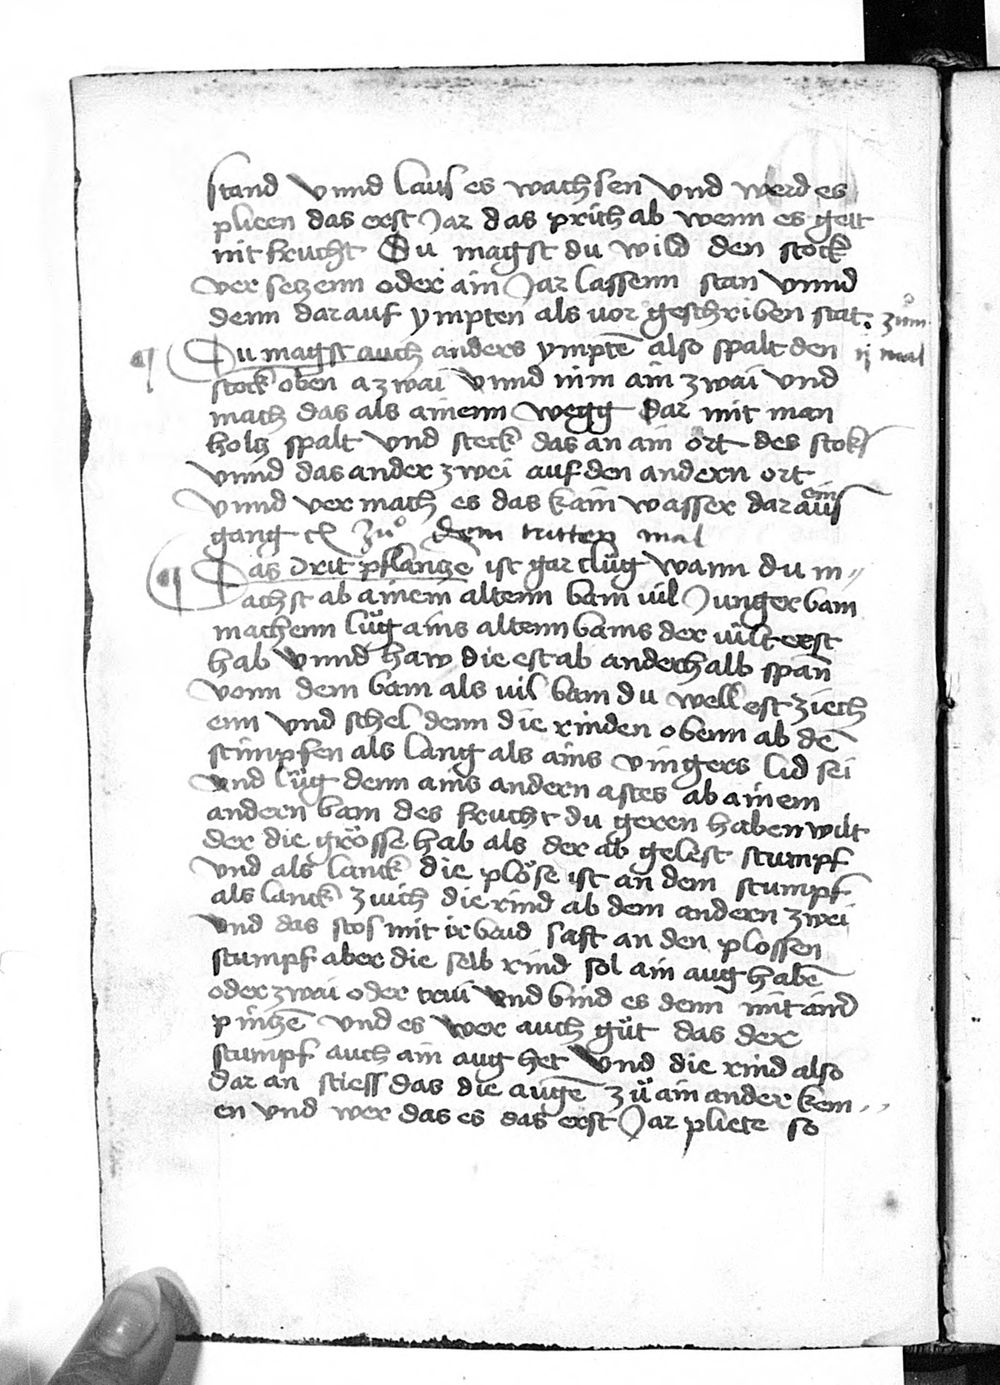 stand vnnd laus es wachsen vnd werd es
plieen das erst Jar das prich ab wenn es geit
nit frucht Du magst du wild den stock
ver setzenn oder ain Jar lassenn stan vnnd
denn darauf ympten als uor geschriben stat. zům
ij mal
¶ Du magst auch anders ymptē also spalt den
stock oben a zwai vnnd nim ain zwai vnd
mach das als ainenn wegg dar mit man
holtz spalt vnd steck das an ain ort des stoks
vnnd das ander zwei auf den andern ort
vnnd ver mach es das kain wasser dar ein aus
gang zů dem tritten mal
¶ Das drit pflantzē ist gar clůg wann du m〃
achst ab ainem altenn bam uil Junger bam
machenn lůg ains altenn bams der uilt erst
hab vnnd haw die est ab anderhalb span
vonn dem bam als uil bam du wellest ziech
enn vnd schel denn die rinden obenn ab dē
stimpfen als lang als ains vingers lid sei
vnd lůg denn ains andern astes ab ainem
andern bam des frucht du geren haben wilt
der die grösse hab als der ab gelest stumpf
vnd als lanck die plöse ist an dem stumpf
als lanck zuich die rind ab dem andern zwei
vnd das stos mit ir saft an den plossen
stumpf aber die selb rind sol ain aug habē
oder zwai oder trui vnd bind es denn mit aind
pintzē vnd es wer auch gůt das der
stumpf auch ain aug het vnd die rind also
dar an stiess das die augē zů ain ander kem〃
en vnd wer das es das erst Jar pliete so